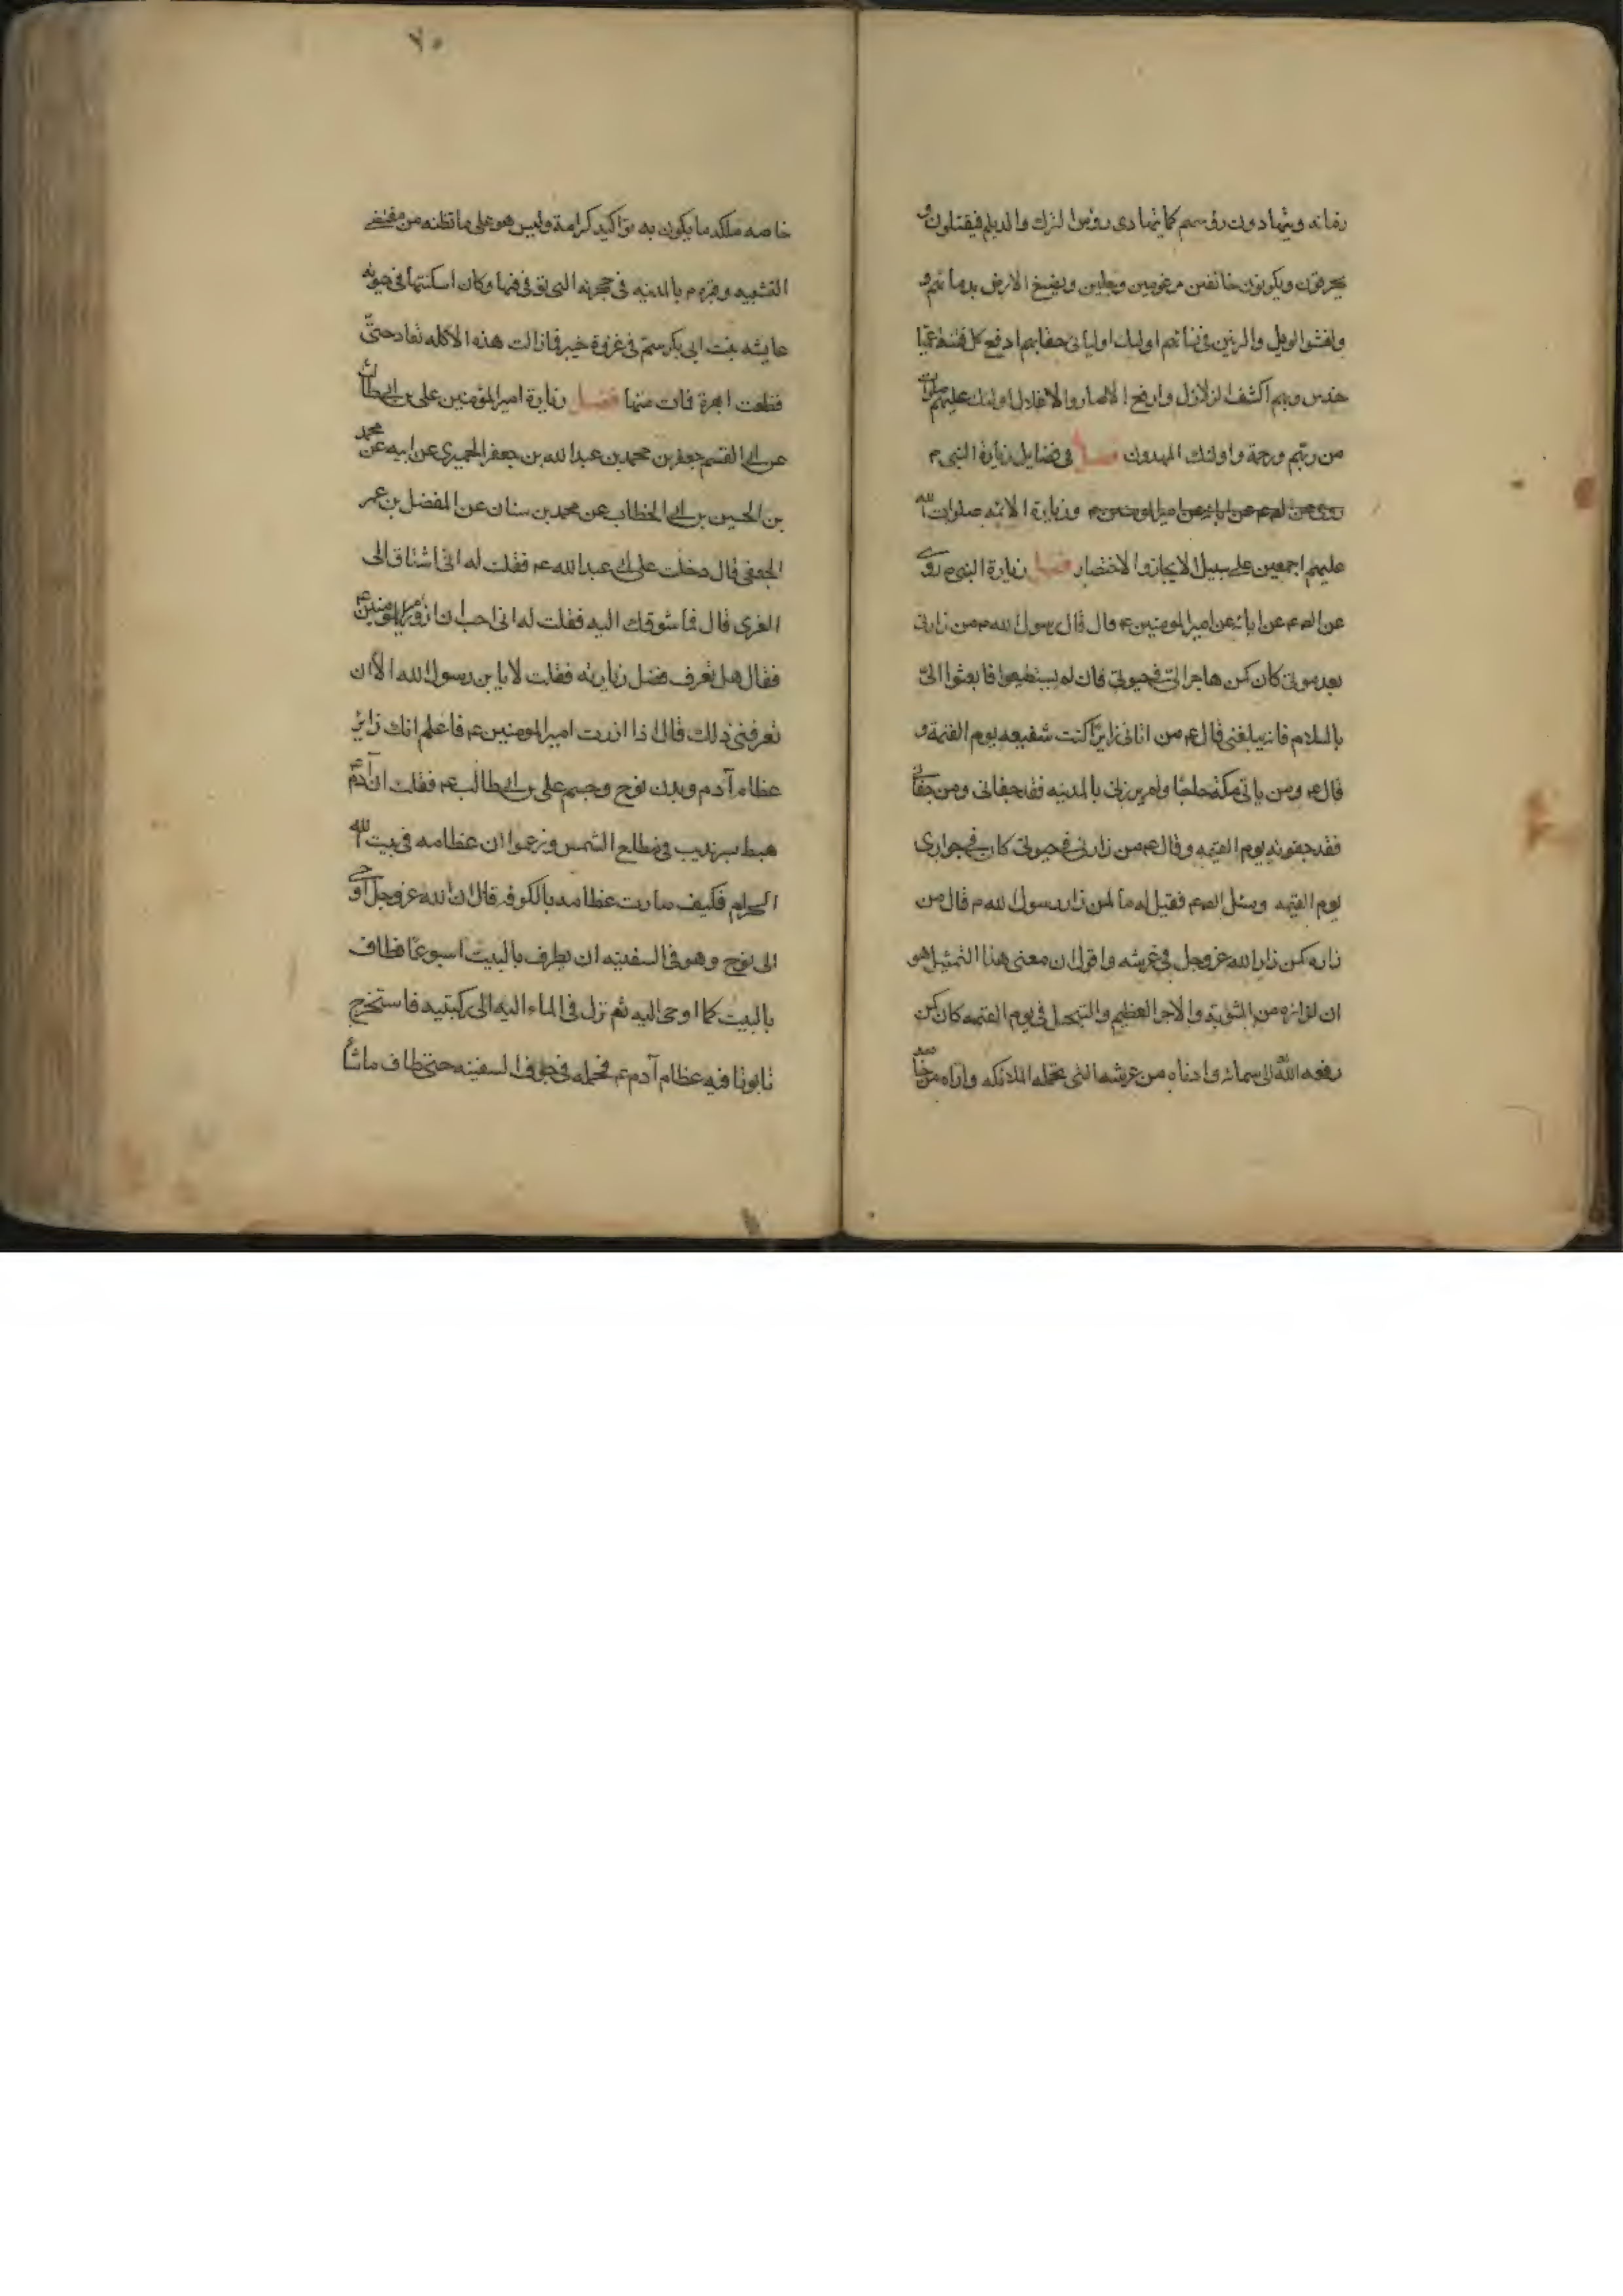 زمانه ويتهادون رؤسهم كما يتهادى رؤس الترك والديلم فيقتلون و
يحرقون ويكونون خائفين مرعوبين وجلين وتصبغ الارض بدمائهم و
يفشوا الويل والرنين فى نسائهم اولئك اوليائى حقا بهم ادفع كل فتنة عميا
حندس وبهم اكشف الزلازل وارفع الاصار والاغلال اولئك عليهم صلوات
من ربهم ورحمة واولئك المهتدون فصل فى فضايل زيارة النبى م
روى عن الصم عن ابائه عن امير المومنين م وزيارة الائمه صلوات الله
عليهم اجمعين على سبيل الايجاز والاختصار فصل زيارة النبى م روى
عن الصم عن ابائه عن امير المومنين ع قال قال رسول الله م من زارنى
بعد موتى كان كمن هاجر الىّ فى حيوتى فان لم يستطيعوا فابعثوا الىّ
بالسلام فانه يبلغنى قال ع من اتانى زايرا كنت شفيعه يوم القيمة و
قال ع ومن ياتى مكة حاجا ولم يزرنى بالمدينه فقد جفانى ومن جفانى
فقد جفوته يوم القيمه وقال ع من زارنى فى حيوتى كان فى جوارى
يوم القيمه وسئل الصم فقيل له ما لمن زار رسول الله م قال من
زاره كمن زار الله عز وجل فى عرشه واقول ان معنى هذا التمثيل هو
ان لزائره من المثوبة والاجر العظيم والتبجيل فى يوم القيمه كان كمن
رفعه الله الى سمائه وادناه من عرشه الذى تحمله الملائكه واراه من خا
٧٥
خاصه ملكه ما يكون به توكيد كرامة وليس هو على ما تظنه من مقتضى
التشبيه وقبره م بالمدينه فى حجرته التى توفى فيها وكان اسكنتها فى حيوته
عايشه بنت ابى بكر سمّ فى غزوة خيبر فما زالت هذه الاكله تعاد حتى
قطعت ابهره فمات منها فصل زيارة امير المؤمنين على بن ابيطالب
عن ابى القسم جعفر بن محمد بن عبد الله بن جعفر الحميرى عن ابيه عن محمد
بن الحسين بن ابى الخطاب عن محمد بن سنان عن المفضل بن عمر
الجعفى قال دخلت على ابى عبد الله ع فقلت له انى اشتاق الى
الغرى قال فما شوقك اليه فقلت له انى احب ان ازور امير المومنين ع
فقال هل تعرف فضل زيارته فقلت لا يا بن رسول الله الا ان
تعرفنى ذلك قال اذا زرت امير المومنين ع فاعلم انك زاير
عظام آدم وبدن نوح وجسم على بن ابى طالب ع فقلت ان آدم ع
هبط بسرنديب فى مطلع الشمس وزعموا ان عظامه فى بيت الله
الحرام فكيف صارت عظامه بالكوفه قال ان الله عز وجل اوحى
الى نوح وهو فى السفينه ان يطوف بالبيت اسبوعا فطاف
بالبيت كما اوحى اليه ثم نزل فى الماء اليه الى ركبتيه فاستخرج
تابوتا فيه عظام آدم ع فحمله فى جوف السفينه حتى طاف ما شا